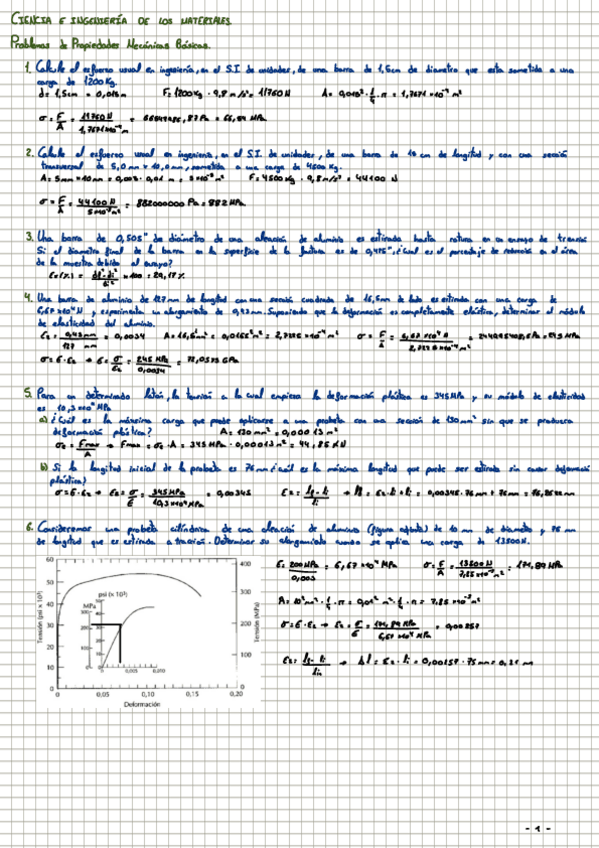 CIENCIA E INGENIERÍA DE LOS MATERIALES
Problemas de Propiedades Mecánicas Básicas.
1. Calcule el esfuerzo usual en ingeniería, en el S.I. de unidades, de una barra de 1,5cm de diametro que esta sometida a una
carga de 1200Kg.
d= 1,5cm = 0,015m F= 1200Kg · 9,8 m/s² = 11760N A= 0,015² · 1/4 · π = 1,7671·10⁻⁴ m²
σ = F/A = 11760N / 1,7671·10⁻⁴ m² = Pa = MPa
2. Calcule el esfuerzo usual en ingenieria, en el S.I. de unidades, de una barra de 10 cm de longitud y con una sección
transversal de 5,0 mm x 10,0 mm, sometida a una carga de 4500 Kg.
A= 5mm × 10mm = 0,005 · 0,01 m = 5·10⁻⁵ m² F= 4500 Kg · 9,8 m/s² = 44100 N
σ = F/A = 44100 N / 5·10⁻⁵ m² = 882000000 Pa = 882 MPa
3. Una barra de 0,505" de diámetro de una aleación de aluminio es estirada hasta rotura en un ensayo de tracción
Si el diametro final de la barra en la superficie de la fractura es de 0,425", ¿Cual es el porcentaje de reducción en el área
de la muestra debido al ensayo?
× 100 = 29,17 %
4. Una barra de aluminio de 127 mm de longitud con una sección cuadrada de 16,5 mm de lado es estirada con una carga de
6,67·10⁴ N y experimenta un alargamiento de 0,43 mm. Suponiendo que la deformación es completamente elástica, determinar el módulo
de elasticidad del aluminio.
= 0,43 mm / 127 mm = 0,0034 A= 16,5² mm² = 0,0165² m² = 2,7225·10⁻⁴ m² σ = F/A = 6,67·10⁴ N / 2,7225·10⁻⁴ m² =
σ = E · → E = σ / = 245 MPa / 0,0034 = 72,0573 GPa
5. Para un determinado latón, la tensión a la cual empieza la deformación plástica es 345 MPa y su módulo de elasticidad
es 10,3·10⁴ MPa
a) ¿Cuál es la máxima carga que puede aplicarse a una probeta con una sección de 130 mm² sin que se produzca
deformación plástica? A = 130 mm² = 0,00013 m²
= Fmax / A → Fmax = · A = 345 MPa · 0,00013 m² = 44,85 KN
b) Si la longitud inicial de la probeta es 76 mm ¿cuál es la máxima longitud que puede ser estirada sin causar deformación
plástica?
σ = E · → = σ/E = 345 MPa / 10,3·10⁴ MPa = 0,00345 = 0,00345 · 76 mm + 76 mm =
6. Consideremos una probeta cilíndrica de una aleación de aluminio (figura adjunta) de 10 mm de diametro y 75 mm
de longitud que es estirada a tracción. Determinar su alargamiento cuando se aplica una carga de 13500N.
E = 200 MPa / 0,003 = 6,67·10⁴ MPa σ = F/A = 13500 N / 7,85·10⁻⁵ m² = 171,89 MPa
A = 10² mm² · 1/4 · π = 0,01² m² · 1/4 · π = 7,85·10⁻⁵ m²
σ = E · → = σ/E = / 6,67·10⁴ MPa = 0,00257
→ Δl = = 0,00257 · 75 mm = 0,21 mm
Tensión (psi x 10³)
60
50
40
30
20
10
0
psi (x 10³)
MPa
300
200
100
0
0,005
0,010
400
300
200
100
0
Tensión (MPa)
0
0,05
0,10
0,15
0,20
Deformación
- 1 -